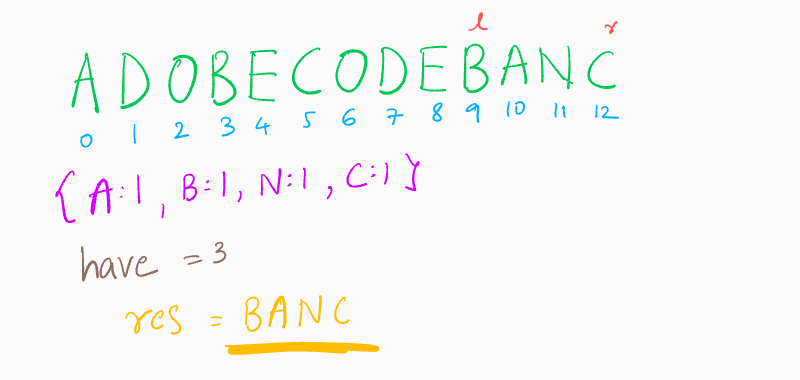 l r
ADOBECODEBANC
0 1 2 3 4 5 6 7 8 9 10 11 12
{A:1, B:1, N:1, C:1}
have = 3
res = BANC